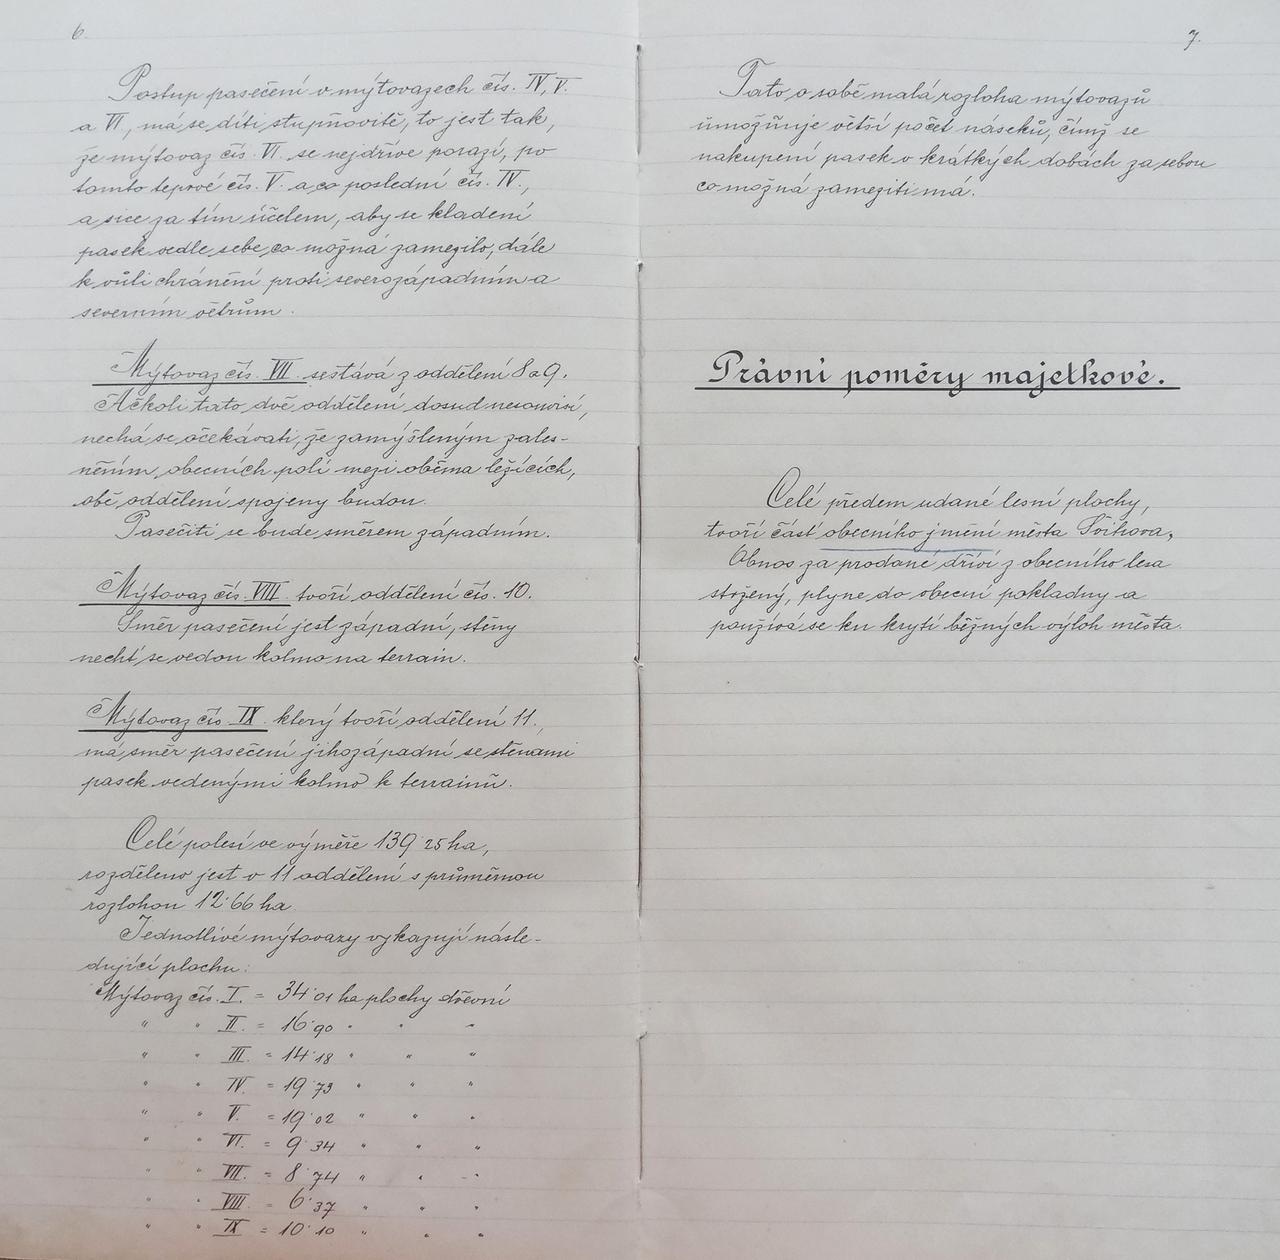 6.
Postup pasečení v mýtovazech čís. IV, V.
a VI, má se díti stupňovitě, to jest tak,
že mýtovaz čís. VI. se nejdříve porazí, po
tomto teprvé čís. V. a co poslední čís. IV.,
a sice za tím účelem, aby se kladení
pasek vedle sebe, co možná zamezilo, dále
k vůli chránění proti severozápadním a
severním větrům.
Mýtovaz čís. VII. sestává z oddělení 8 a 9.
Ačkoli tato dvě oddělení dosud nesouvisí,
nechá se očekávati, že zamýšleným zales-
něním, obecních polí mezi oběma ležících,
obě oddělení spojeny budou.
Pasečiti se bude směrem západním.
Mýtovaz čís. VIII. tvoří oddělení čís. 10.
Směr pasečení jest západní, stěny
nechť se vedou kolmo na terrain.
Mýtovaz čís. IX. který tvoří oddělení 11.,
má směr pasečení jihozápadní se stěnami
pasek vedenými kolmo k terrainů.
Celé polesí ve výměře 139·25 ha,
rozděleno jest v 11 oddělení s průměrnou
rozlohou 12·66 ha.
Jednotlivé mýtovazy vykazují násle-
dující plochu:
Mýtovaz čís. I. = 34·01 ha plochy dřevní
" " II. = 16·90 " " "
" " III. = 14·18 " " "
" " IV. = 19·73 " " "
" " V. = 19·02 " " "
" " VI. = 9·34 " " "
" " VII. = 8·74 " " "
" " VIII. = 6·37 " " "
" " IX. = 10·10 " " "
7.
Tato o sobě malá rozloha mýtovazů
umožňuje větší počet náseků, čímž se
nakupení pasek v krátkých dobách za sebou
co možná zameziti má.
Právní poměry majetkové.
Celé předem udané lesní plochy,
tvoří část obecního jmění města Švihova.
Obnos za prodané dříví z obecního lesa
stržený, plyne do obecní pokladny a
používá se ku krytí běžných výloh města.